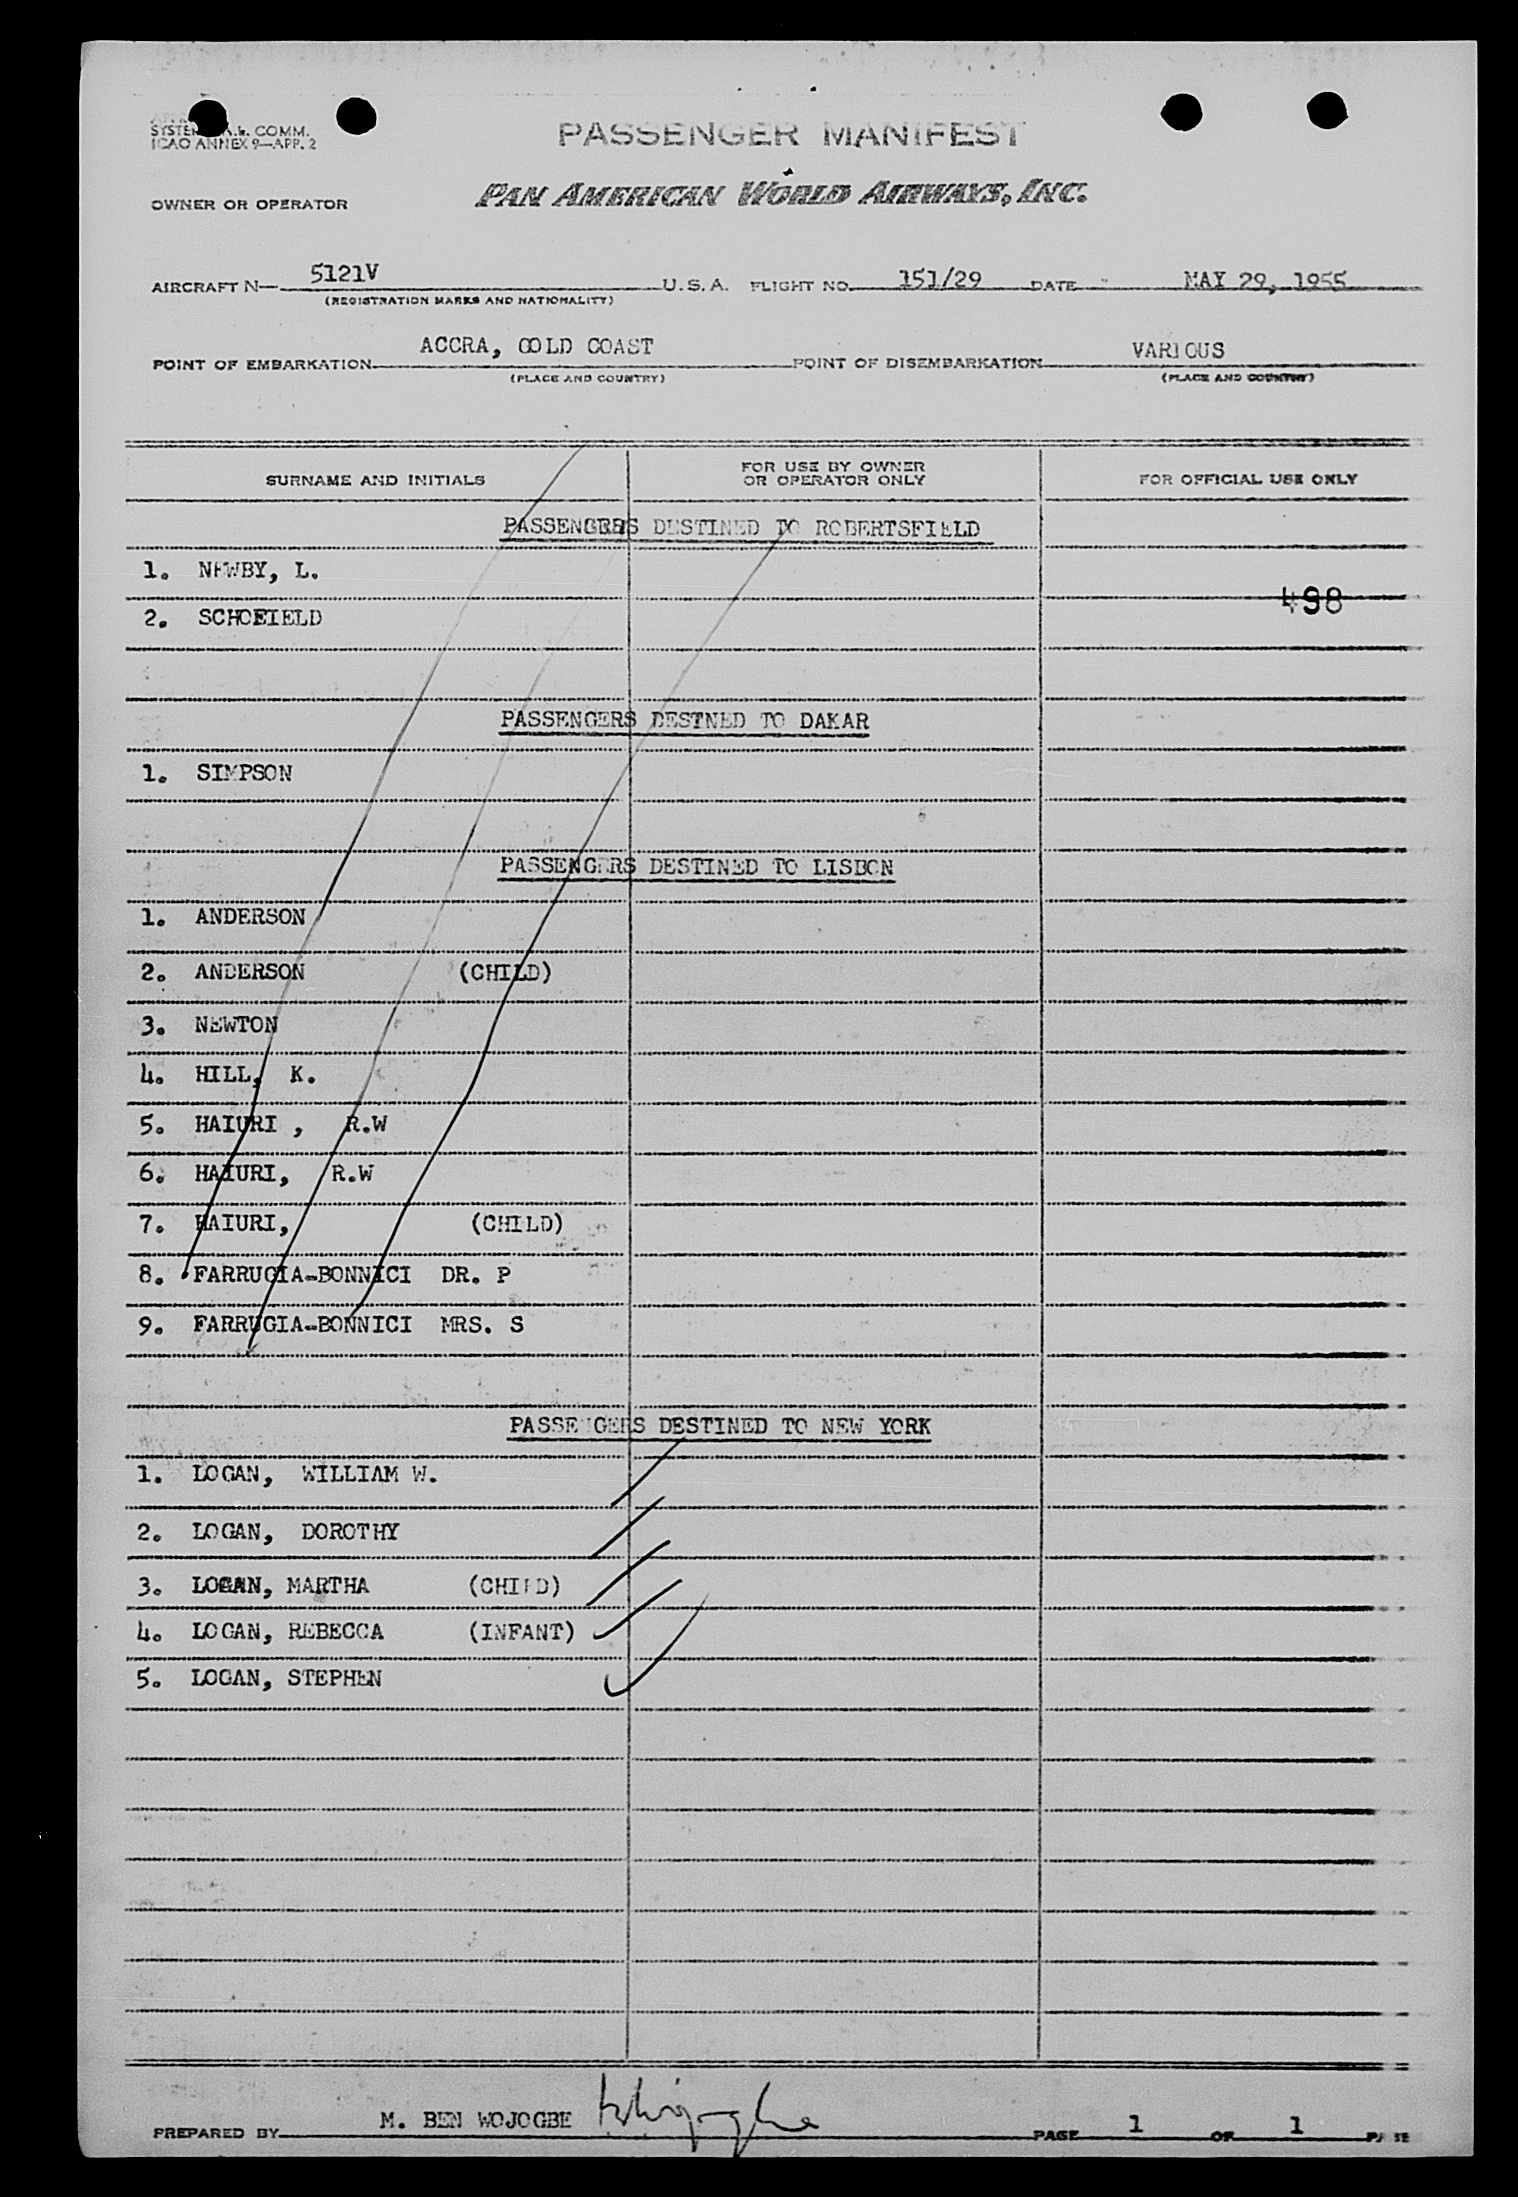 SYSTEM A.L. COMM.
ICAO ANNEX 9—APP. 2
PASSENGER MANIFEST
OWNER OR OPERATOR PAN AMERICAN WORLD AIRWAYS, INC.
AIRCRAFT N— 5121V U.S.A. FLIGHT NO. 151/29 DATE MAY 29, 1955
(REGISTRATION MARKS AND NATIONALITY)
POINT OF EMBARKATION ACCRA, GOLD COAST POINT OF DISEMBARKATION VARIOUS
(PLACE AND COUNTRY) (PLACE AND COUNTRY)
SURNAME AND INITIALS FOR USE BY OWNER OR OPERATOR ONLY FOR OFFICIAL USE ONLY
PASSENGERS DESTINED TO ROBERTSFIELD
1. NEWBY, L.
498
2. SCHOFIELD
PASSENGERS DESTNED TO DAKAR
1. SIMPSON
PASSENGERS DESTINED TO LISBON
1. ANDERSON
2. ANDERSON (CHILD)
3. NEWTON
4. HILL, K.
5. HAIURI , R.W
6. HAIURI, R.W
7. HAIURI, (CHILD)
8. FARRUGIA-BONNICI DR. P
9. FARRUGIA-BONNICI MRS. S
PASSENGERS DESTINED TO NEW YORK
1. LOGAN, WILLIAM W.
2. LOGAN, DOROTHY
3. LOGAN, MARTHA (CHILD)
4. LOGAN, REBECCA (INFANT)
5. LOGAN, STEPHEN
PREPARED BY M. BEN WOJOGBE PAGE 1 OF 1 PAGE